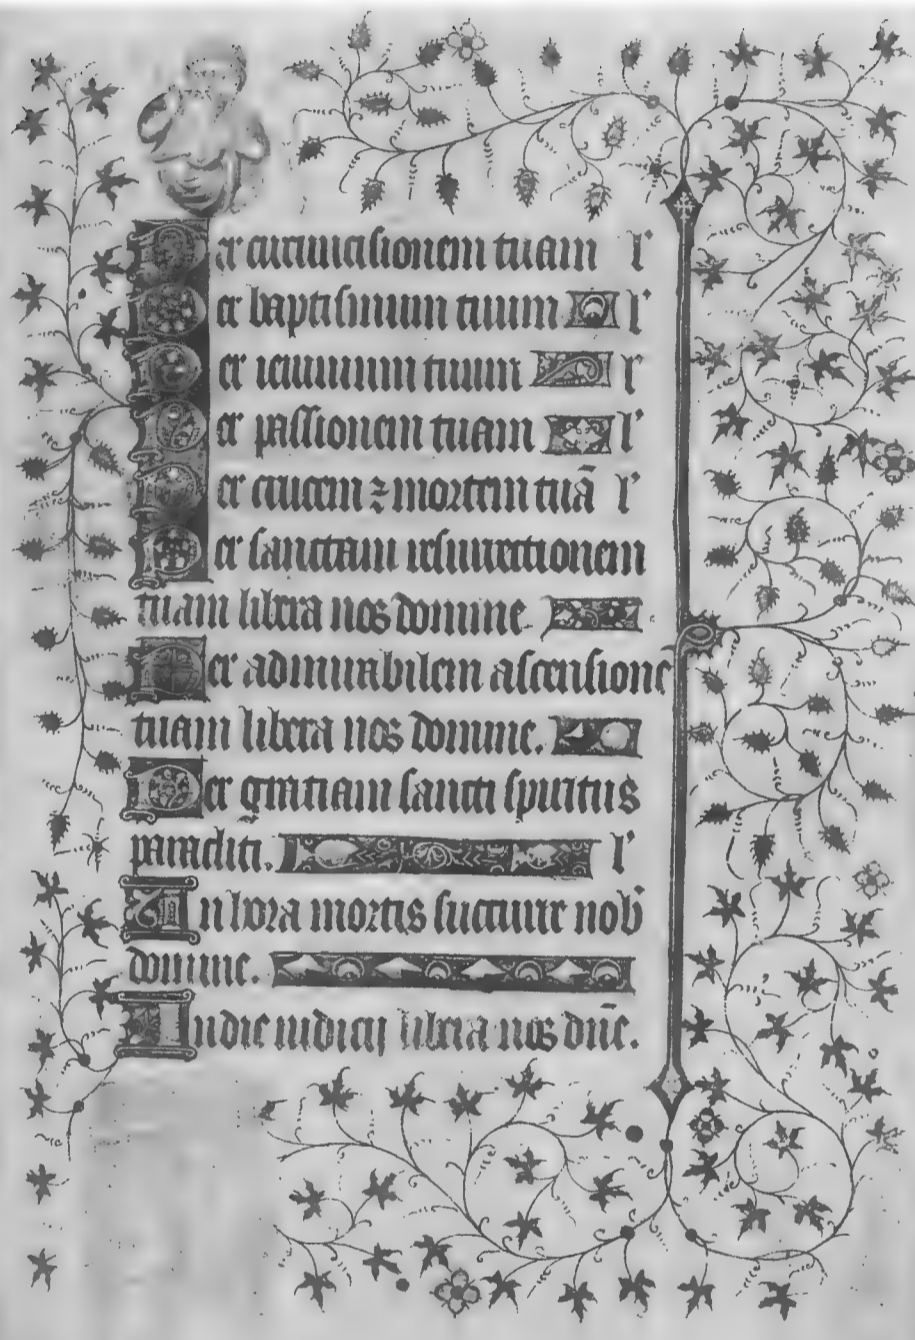 Per circumcisionem tuam l'
Per baptismum tuum l'
Per ieiunium tuum l'
Per passionem tuam l'
Per crucem ⁊ mortem tuā l'
Per sanctam resurrectionem
tuam libera nos domine.
Per admirabilem ascensionē
tuam libera nos domine.
Per gratiam sancti spiritus
paracliti. l'
In hora mortis succurre nob̄
domine.
In die iudicij libera nos dn̄e.